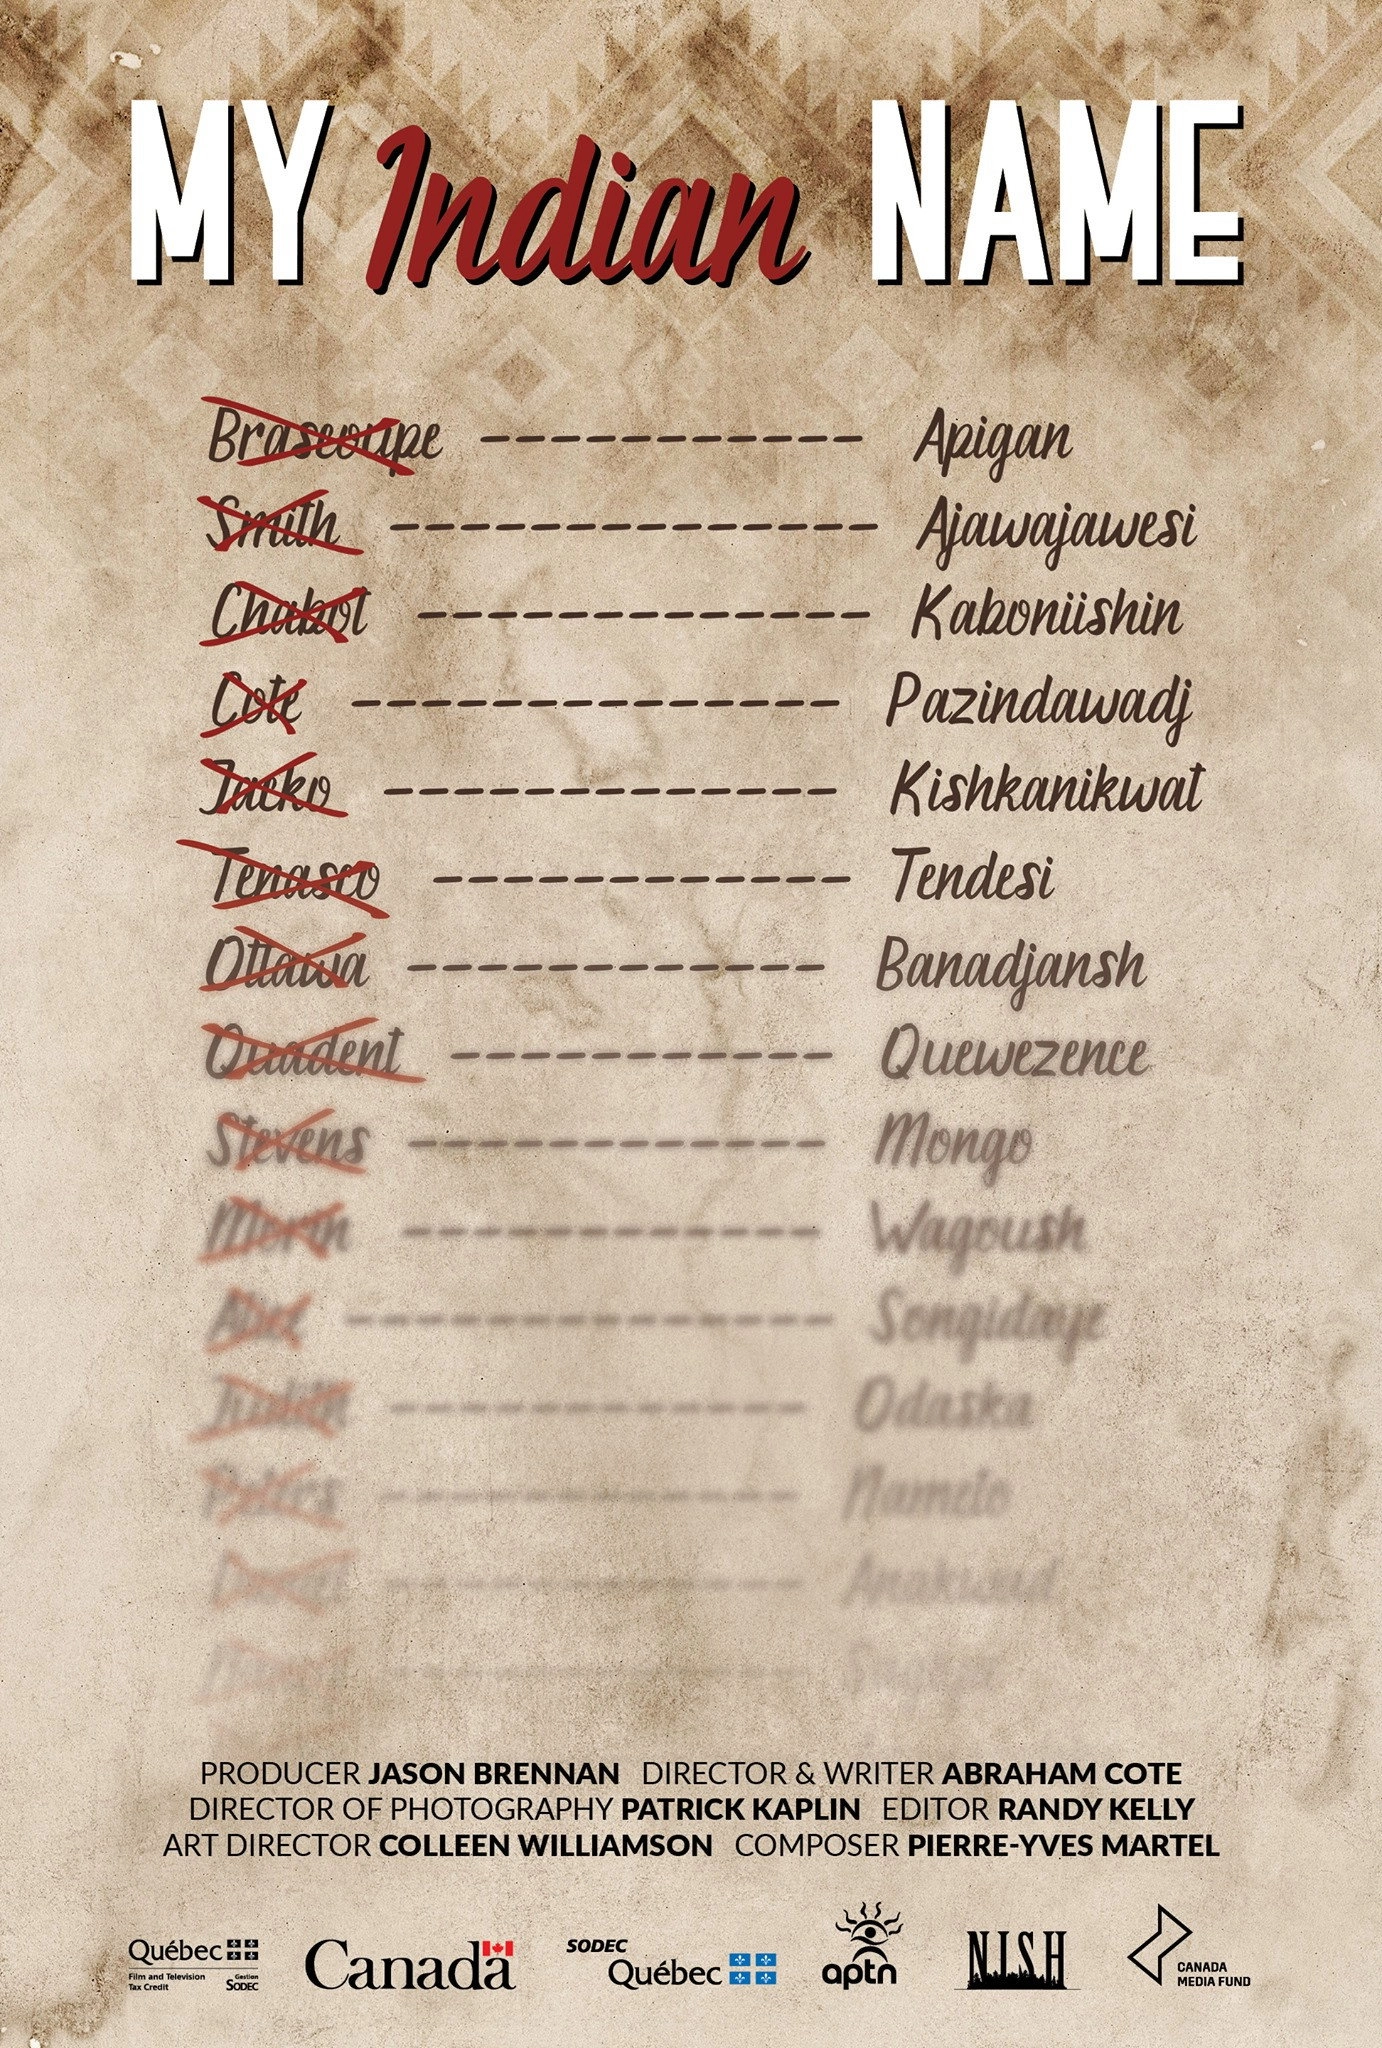 MY Indian NAME
Brascoupe Apigan
Smith Ajawajawesi
Chabot Kaboniishin
Cote Pazindawadj
Jacko Kishkanikwat
Tenasco Tendesi
Ottawa Banadjansh
Quadent Quewezence
Stevens Mongo
Morin Wagoush
Songidaye
Odaska
Peters
PRODUCER JASON BRENNAN DIRECTOR & WRITER ABRAHAM COTE
DIRECTOR OF PHOTOGRAPHY PATRICK KAPLIN EDITOR RANDY KELLY
ART DIRECTOR COLLEEN WILLIAMSON COMPOSER PIERRE-YVES MARTEL
Québec
Film and Television
Tax Credit
Gestion
SODEC
Canada
SODEC
Québec
aptn
NISH
CANADA
MEDIA FUND